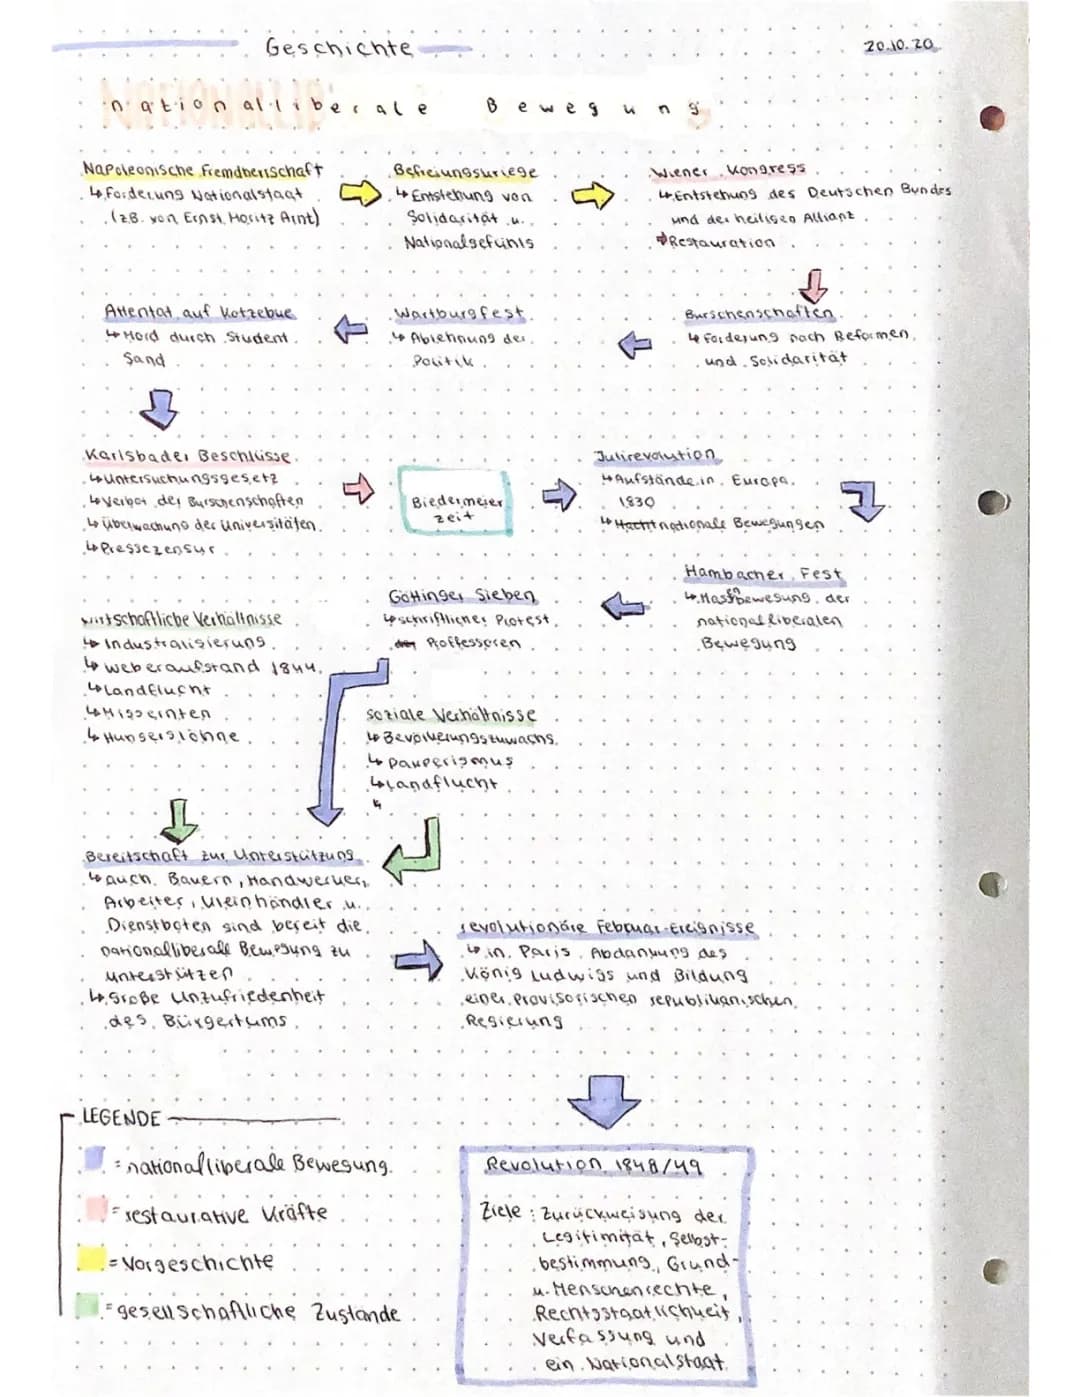 Geschichte
20.10.20
nationalliberale Bewegung
Napoleonische Fremdherrschaft
↳Forderung Nationalstaat
(z.B. von Ernst Moritz Arnt)
Befreiungskriege
↳Entstehung von
Solidarität u.
Nationalgefühls
Wiener Kongress
↳Entstehung des Deutschen Bundes
und der heiligen Allianz
➔Restauration
Attentat auf Kotzebue
↳Mord durch Student
Sand
Wartburgfest
↳Ablehnung der
Politik
Burschenschaften
↳Forderung nach Reformen
und Solidarität
Karlsbader Beschlüsse
↳Untersuchungsgesetz
↳Verbot der Burschenschaften
↳Überwachung der Universitäten
↳Pressezensur
Biedermeier
zeit
Julirevolution
↳Aufstände in Europa
1830
↳Macht nationale Bewegungen
Hambacher Fest
↳Massenbewegung der
nationalliberalen
Bewegung
Göttinger Sieben
↳schriftlicher Protest
der Proffessoren
wirtschaftliche Verhältnisse
↳Industralisierung
↳Weberaufstand 1844
↳Landflucht
↳Missernten
↳Hungerslöhne
soziale Verhältnisse
↳Bevölkerungszuwachs
↳Pauperismus
↳Landflucht
↳
Bereitschaft zur Unterstützung
↳auch Bauern, Handwerker,
Arbeiter, Kleinhändler u.
Dienstboten sind bereit die
nationalliberale Bewegung zu
unterstützen
↳große Unzufriedenheit
des Bürgertums
revolutionäre Februar-Ereignisse
↳in Paris Abdankung des
König Ludwigs und Bildung
einer provisorischen republikanischen
Regierung
LEGENDE
= nationalliberale Bewegung
= restaurative Kräfte
= Vorgeschichte
= gesellschaftliche Zustände
Revolution 1848/49
Ziele: Zurückweisung der
Legitimität, Selbst-
bestimmung, Grund-
u. Menschenrechte,
Rechtsstaatlichkeit,
Verfassung und
ein Nationalstaat